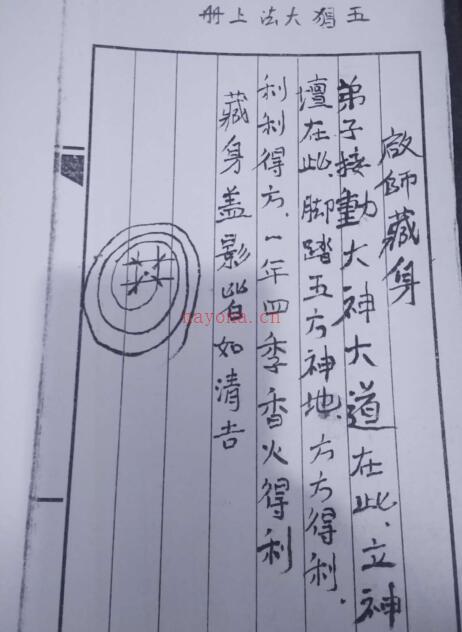 五猖大法上册
启师藏身
弟子接動大神大道在此、立神
壇在此、脚踏五方神地、方方得利、
利利得方、一年四季香火得利
藏身盖影皆如清吉
nayona.cn